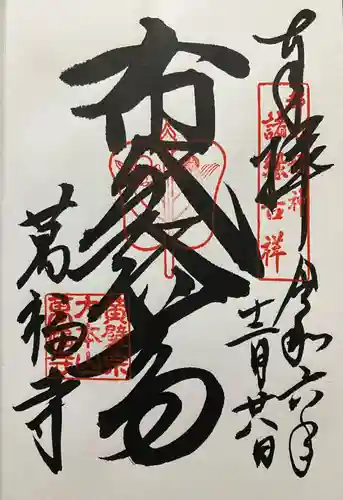 奉拝
都七福神
諸縁吉祥
令和六年
十二月廿八日
布袋尊
萬福寺
黄檗宗
大本山
萬福寺